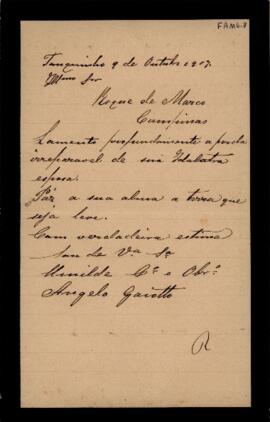 FAMG-8
Tanquinho 9 de Outubro 1907.
Illmo Snr
Roque de Marco
Campinas
Lamento profundamente a perda
irreparavel de sua Idolatra
esposa.
Paz a sua alma a terra que
seja leve.
Com verdadeira estima
sou de V.a S.a
Umilde C.o e Obr.o
Angelo Gaiotto
R